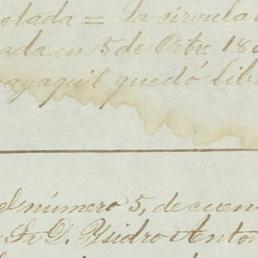 otada = La circula
ada en 5 de Octe. 18
ayaquil quedó lib
el número 5, de cuen
Sr. D. Ysidro Anton